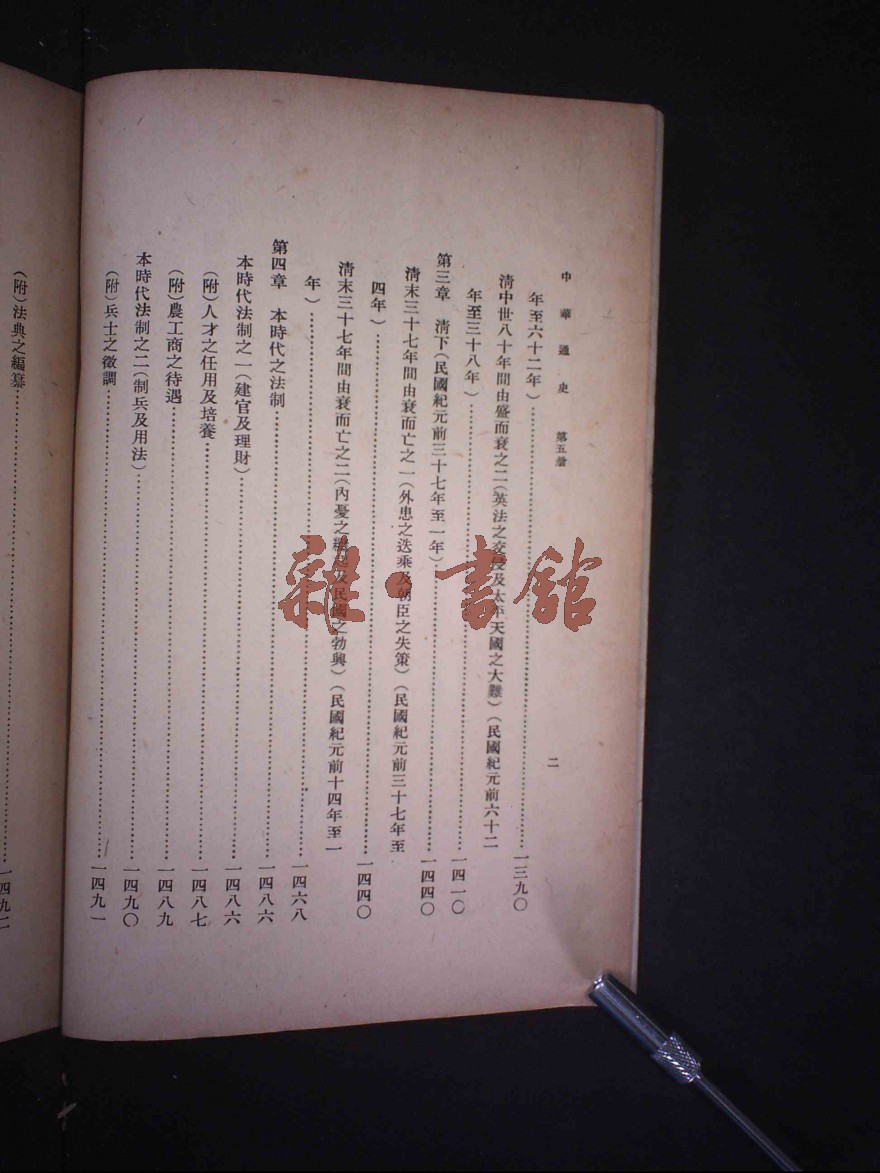 中華通史 第五册 二
年至六十二年）……一三九〇
淸中世八十年間由盛而衰之二（英法之交侵及太平天國之大難）（民國紀元前六十二
年至三十八年）……一四一〇
第三章 淸下（民國紀元前三十七年至一年）……一四四〇
淸末三十七年間由衰而亡之一（外患之迭乘及朝臣之失策）（民國紀元前三十七年至
四年）……一四四〇
淸末三十七年間由衰而亡之二（內憂之繼起及民國之勃興）（民國紀元前十四年至一
年）……一四六八
第四章 本時代之法制……一四八六
本時代法制之一（建官及理財）……一四八六
（附）人才之任用及培養……一四八七
（附）農工商之待遇……一四八九
本時代法制之二（制兵及用法）……一四九〇
（附）兵士之徵調……一四九一
（附）法典之編纂……一四九二
雜·書館